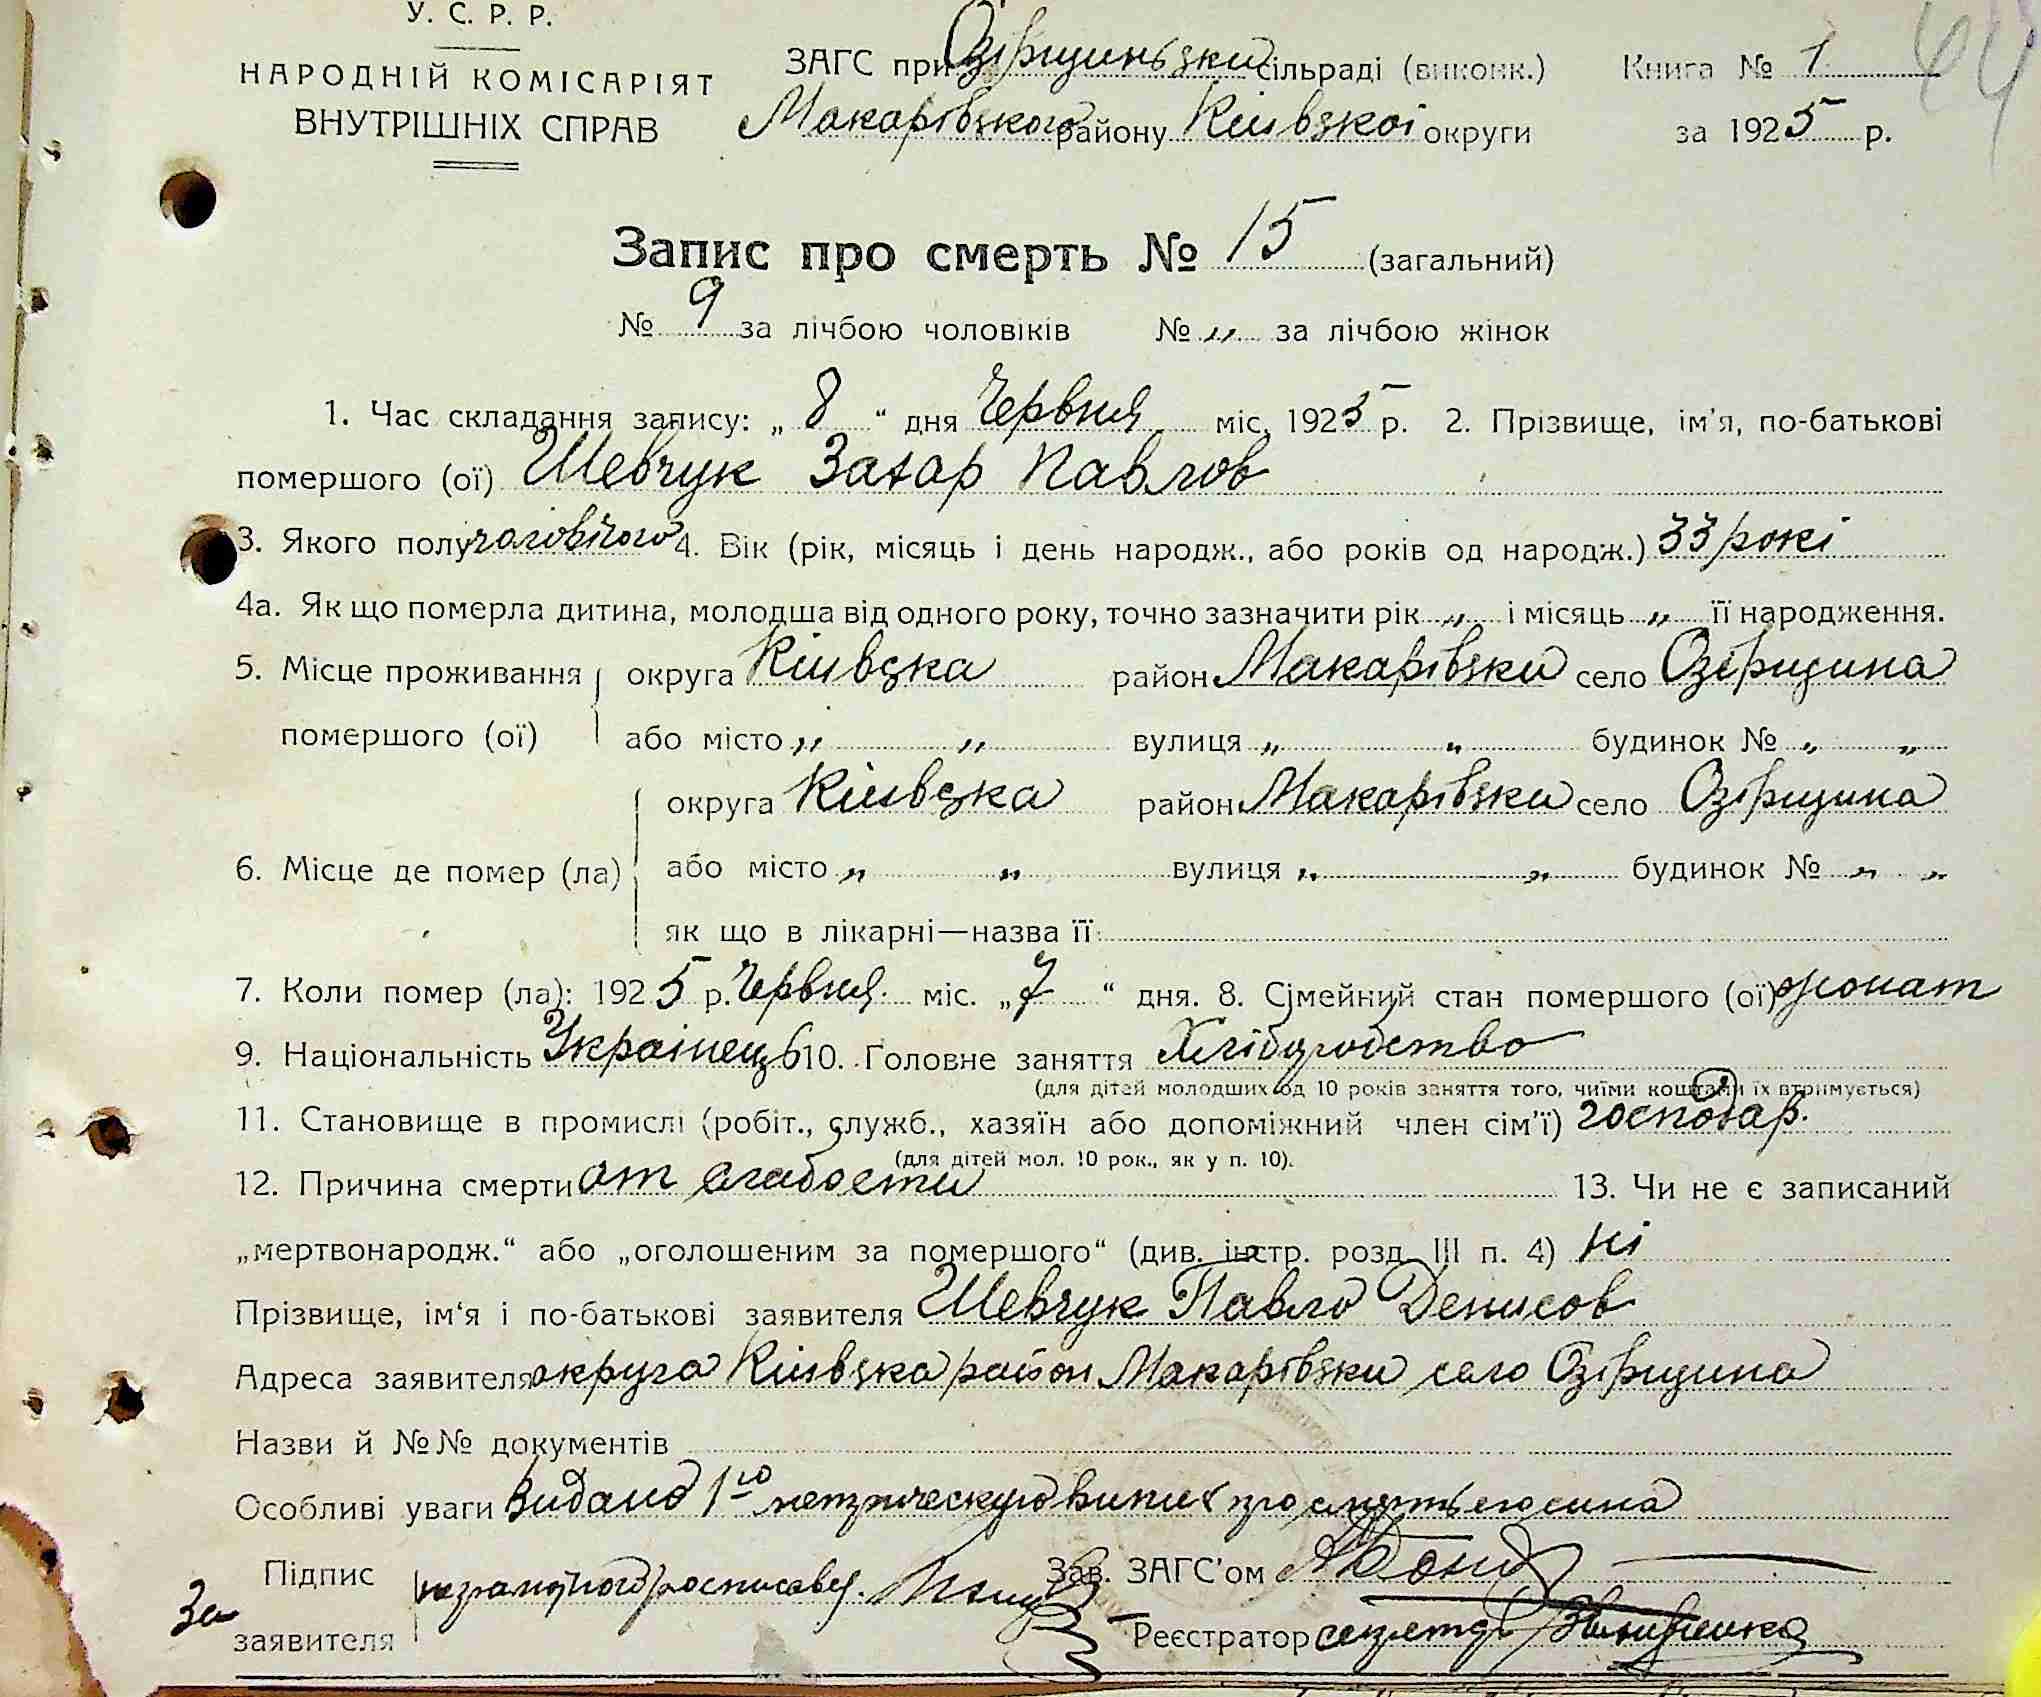 У. С. Р. Р.
НАРОДНІЙ КОМІСАРІЯТ
ВНУТРІШНІХ СПРАВ
ЗАГС при Озірщиньзки сільраді (виконк.) Книга № 1
Макарівзкого району Київзкоі округи за 1925 р.
64
Запис про смерть № 15 (загальний)
№ 9 за лічбою чоловіків № „ за лічбою жінок
1. Час складання запису: „ 8 “ дня Червня міс. 1925 р. 2. Прізвище, ім'я, по-батькові
помершого (ої) Шевчук Захар Павлов
3. Якого полу чоловічого 4. Вік (рік, місяць і день народж., або років од народж.) 33 рокі
4а. Як що померла дитина, молодша від одного року, точно зазначити рік „ і місяць „ її народження.
5. Місце проживання округа Київзка район Макарівзки село Озірщина
помершого (ої) або місто „ „ вулиця „ „ будинок № „ „
округа Київзка район Макарівзки село Озірщина
6. Місце де помер (ла) або місто „ „ вулиця „ „ будинок № „ „
як що в лікарні—назва її
7. Коли помер (ла): 1925 р. Червня міс. „ 7 “ дня. 8. Сімейний стан помершого (ої) жонат
9. Національність Украінець 10. Головне заняття Хлібородство
(для дітей молодших од 10 років заняття того, чиїми коштами їх втримується)
11. Становище в промислі (робіт., служб., хазяїн або допоміжний член сім'ї) господар.
(для дітей мол. 10 рок., як у п. 10).
12. Причина смерти от слабости 13. Чи не є записаний
„мертвонародж.“ або „оголошеним за помершого“ (див. інстр. розд. III п. 4) ні
Прізвище, ім‘я і по-батькові заявителя Шевчук Павло Денисов
Адреса заявителя округа Київзка район Макарівзки село Озірщина
Назви й №№ документів
Особливі уваги Видано 1го метрическую випис про смерть его сина
Підпис Зав. ЗАГС'ом
За неграмотного росписався.
заявителя Реєстратор